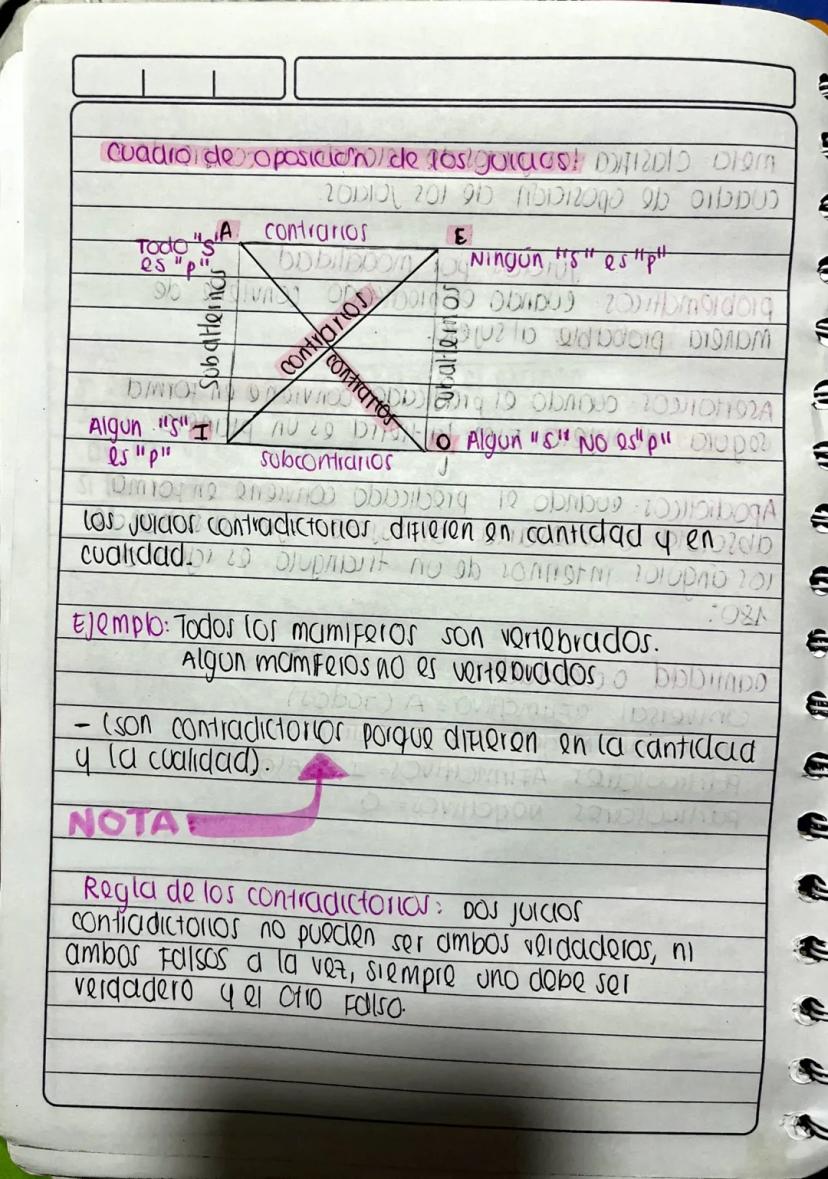 cuadro de oposicion de los juicios:
A contrarios E
Todo "S" es "p"
Ningún "S" es "p"
Subalternos
contrarios
contrarios
Subalternos
Algun "S" es "p" I
O Algun "S" NO es "p"
subcontrarios
Los juicios contradictorios difieren en cantidad y en
cualidad.
Ejemplo: Todos los mamiferos son vertebrados.
Algun mamferos no es vertebrados
- (son contradictorios porque difieren en la cantidad
y la cualidad).
NOTA
Regla de los contradictorios: Dos juicios
contradictorios no pueden ser ambos verdaderos, ni
ambos Falsos a la vez, siempre uno debe ser
verdadero y el otro Falso.